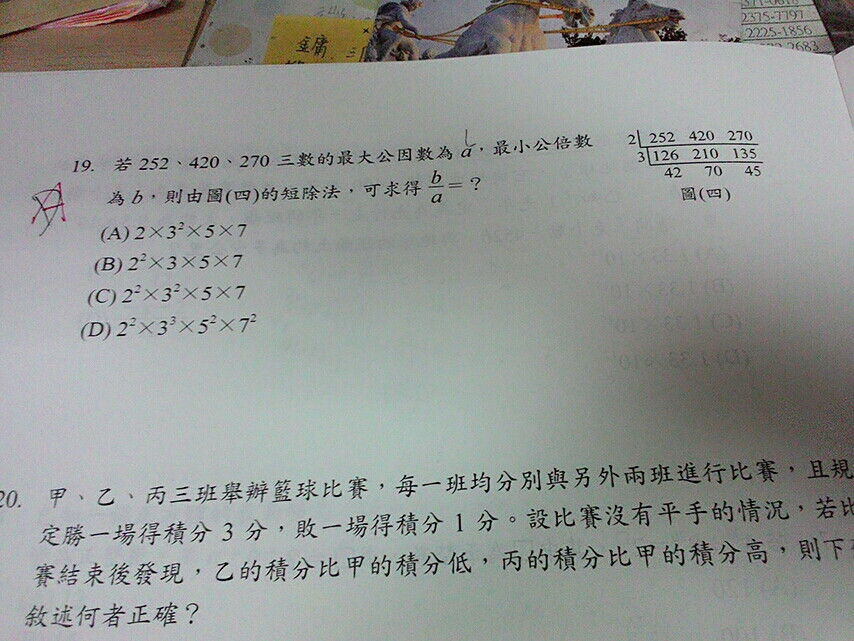 371-0618
2375-7797
2225-1856
2683
19. 若 252、420、270 三數的最大公因數為 a，最小公倍數
為 b，則由圖(四)的短除法，可求得 b/a = ？
(A) 2×3²×5×7
(B) 2²×3×5×7
(C) 2²×3²×5×7
(D) 2²×3³×5²×7²
2 252 420 270
3 126 210 135
42 70 45
圖(四)
20. 甲、乙、丙三班舉辦籃球比賽，每一班均分別與另外兩班進行比賽，且規
定勝一場得積分 3 分，敗一場得積分 1 分。設比賽沒有平手的情況，若比
賽結束後發現，乙的積分比甲的積分低，丙的積分比甲的積分高，則下
敘述何者正確？